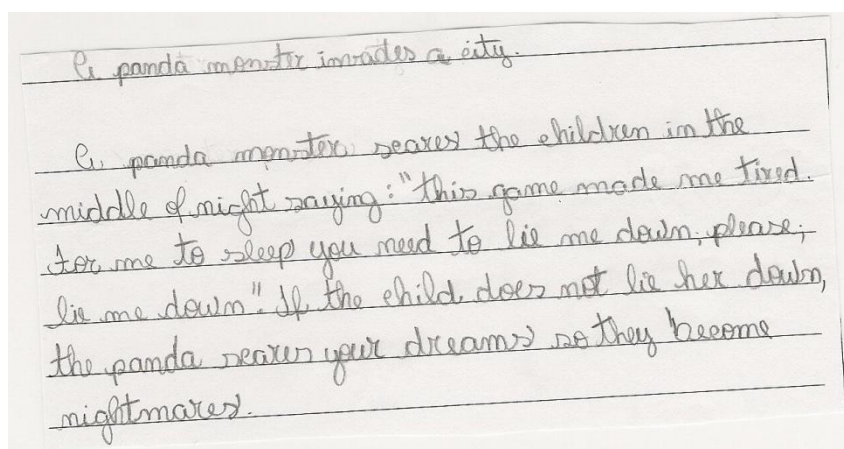 A panda monster invades a city.
A panda monster scares the children in the
middle of night saying: "this game made me tired.
For me to sleep you need to lie me down, please,
lie me down". If the child does not lie her down,
the panda scares your dreams so they become
nightmares.